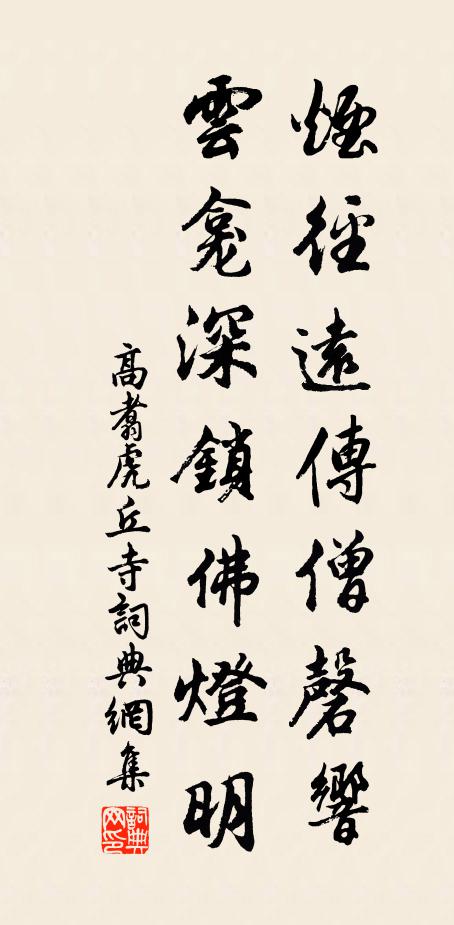 煙徑遠傳僧磬響
雲龕深鎖佛燈明
高翥虎丘寺詞典網集
詞典網印